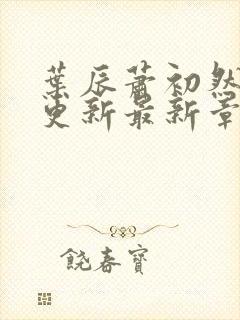 葉辰蕭初然
更新最新章
饒春寶